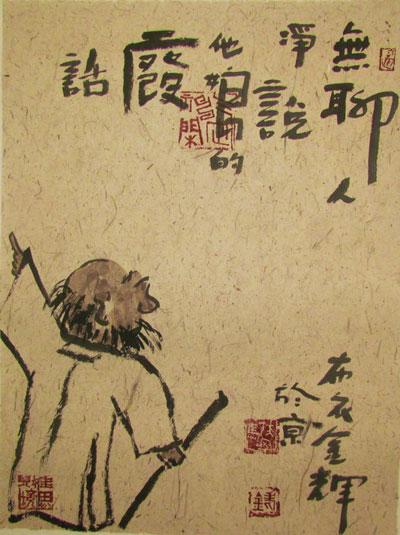 無聊人
淨說
他媽的
廢
話
布衣金輝
於京